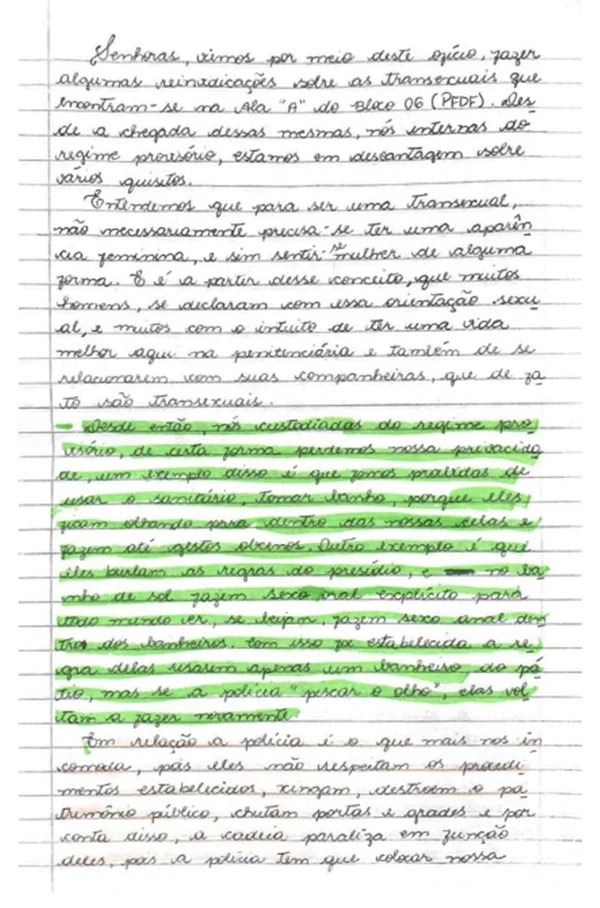 Senhoras, vimos por meio deste ofício, fazer
algumas reinvidicações sobre as transexuais que
encontram-se na Ala "A" do Bloco 06 (PFDF). Des
de a chegada dessas mesmas, nós internas do
regime provisório, estamos em desvantagem sobre
vários quisitos.
Entendemos que para ser uma transexual,
não necessariamente precisa-se ter uma aparên
cia feminina, e sim sentir-se mulher de alguma
forma. E é a partir desse conceito, que muitos
homens, se declaram com essa orientação sexu
al, e muitos com o intuito de ter uma vida
melhor aqui na penitenciária e também de se
relacionarem com suas companheiras, que de fa
to são transexuais.
- Desde então, nós custodiadas do regime pro
visório, de certa forma perdemos nossa privacida
de, um exemplo disso é que fomos proibidas de
usar o sanitário, tomar banho, porque eles
ficam olhando para dentro das nossas celas e
fazem até gestos obcenos. Outro exemplo é que
eles burlam as regras do presídio, e no ba
nho de sol fazem sexo oral explícito para
todo mundo ver, se beijam, fazem sexo anal den
tro dos banheiros. Com isso foi estabelecida a re
gra delas usarem apenas um banheiro, do pá
tio, mas se a polícia "piscar o olho", elas vol
tam a fazer novamente.
Em relação a polícia é o que mais nos in
comoda, pois eles não respeitam os procedi
mentos estabelecidos, xingam, destroem o pa
trimônio público, chutam portas e grades e por
conta disso, a cadeia paraliza em função
deles, pois a polícia tem que colocar nossa